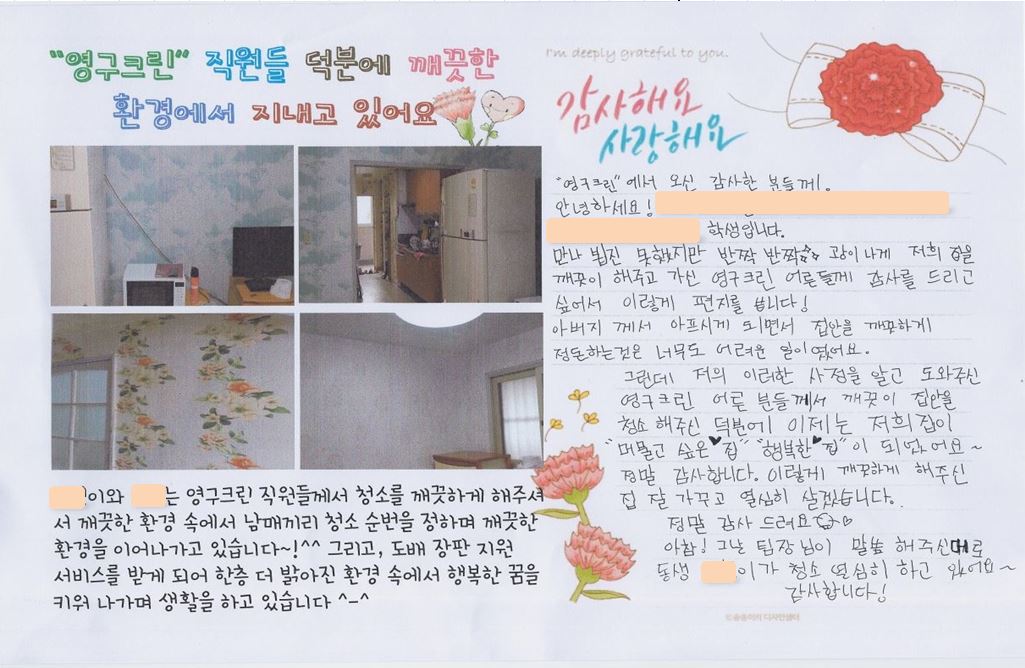 "영구크린" 직원들 덕분에 깨끗한
환경에서 지내고 있어요
이와 는 영구크린 직원들께서 청소를 깨끗하게 해주셔
서 깨끗한 환경 속에서 남매끼리 청소 순번을 정하며 깨끗한
환경을 이어나가고 있습니다~!^^ 그리고, 도배 장판 지원
서비스를 받게 되어 한층 더 밝아진 환경 속에서 행복한 꿈을
키워 나가며 생활을 하고 있습니다 ^-^
I'm deeply grateful to you.
감사해요
사랑해요
"영구크린"에서 오신 감사한 분들께!
안녕하세요!
학생입니다.
만나 뵙진 못했지만 반짝 반짝☆☆ 광이나게 저희 집을
깨끗이 해주고 가신 영구크린 어른들께 감사를 드리고
싶어서 이렇게 편지를 씁니다!
아버지 께서 아프시게 되면서 집안을 깨끗하게
정돈하는것은 너무도 어려운 일이 였어요.
그런데 저의 이러한 사정을 알고 도와주신
영구크린 어른 분들께서 깨끗이 집안을
청소 해주신 덕분에 이제는 저희 집이
"머물고 싶은♥집" "행복한♥집"이 되었어요~
정말 감사합니다. 이렇게 깨끗하게 해주신
집 잘 가꾸고 열심히 살겠습니다.
정말 감사 드려요♡
아참! 그날 팀장님이 말씀 해주신대로
동생 이가 청소 열심히 하고 있어요~
감사합니다!
©송송이의 디자인샘터